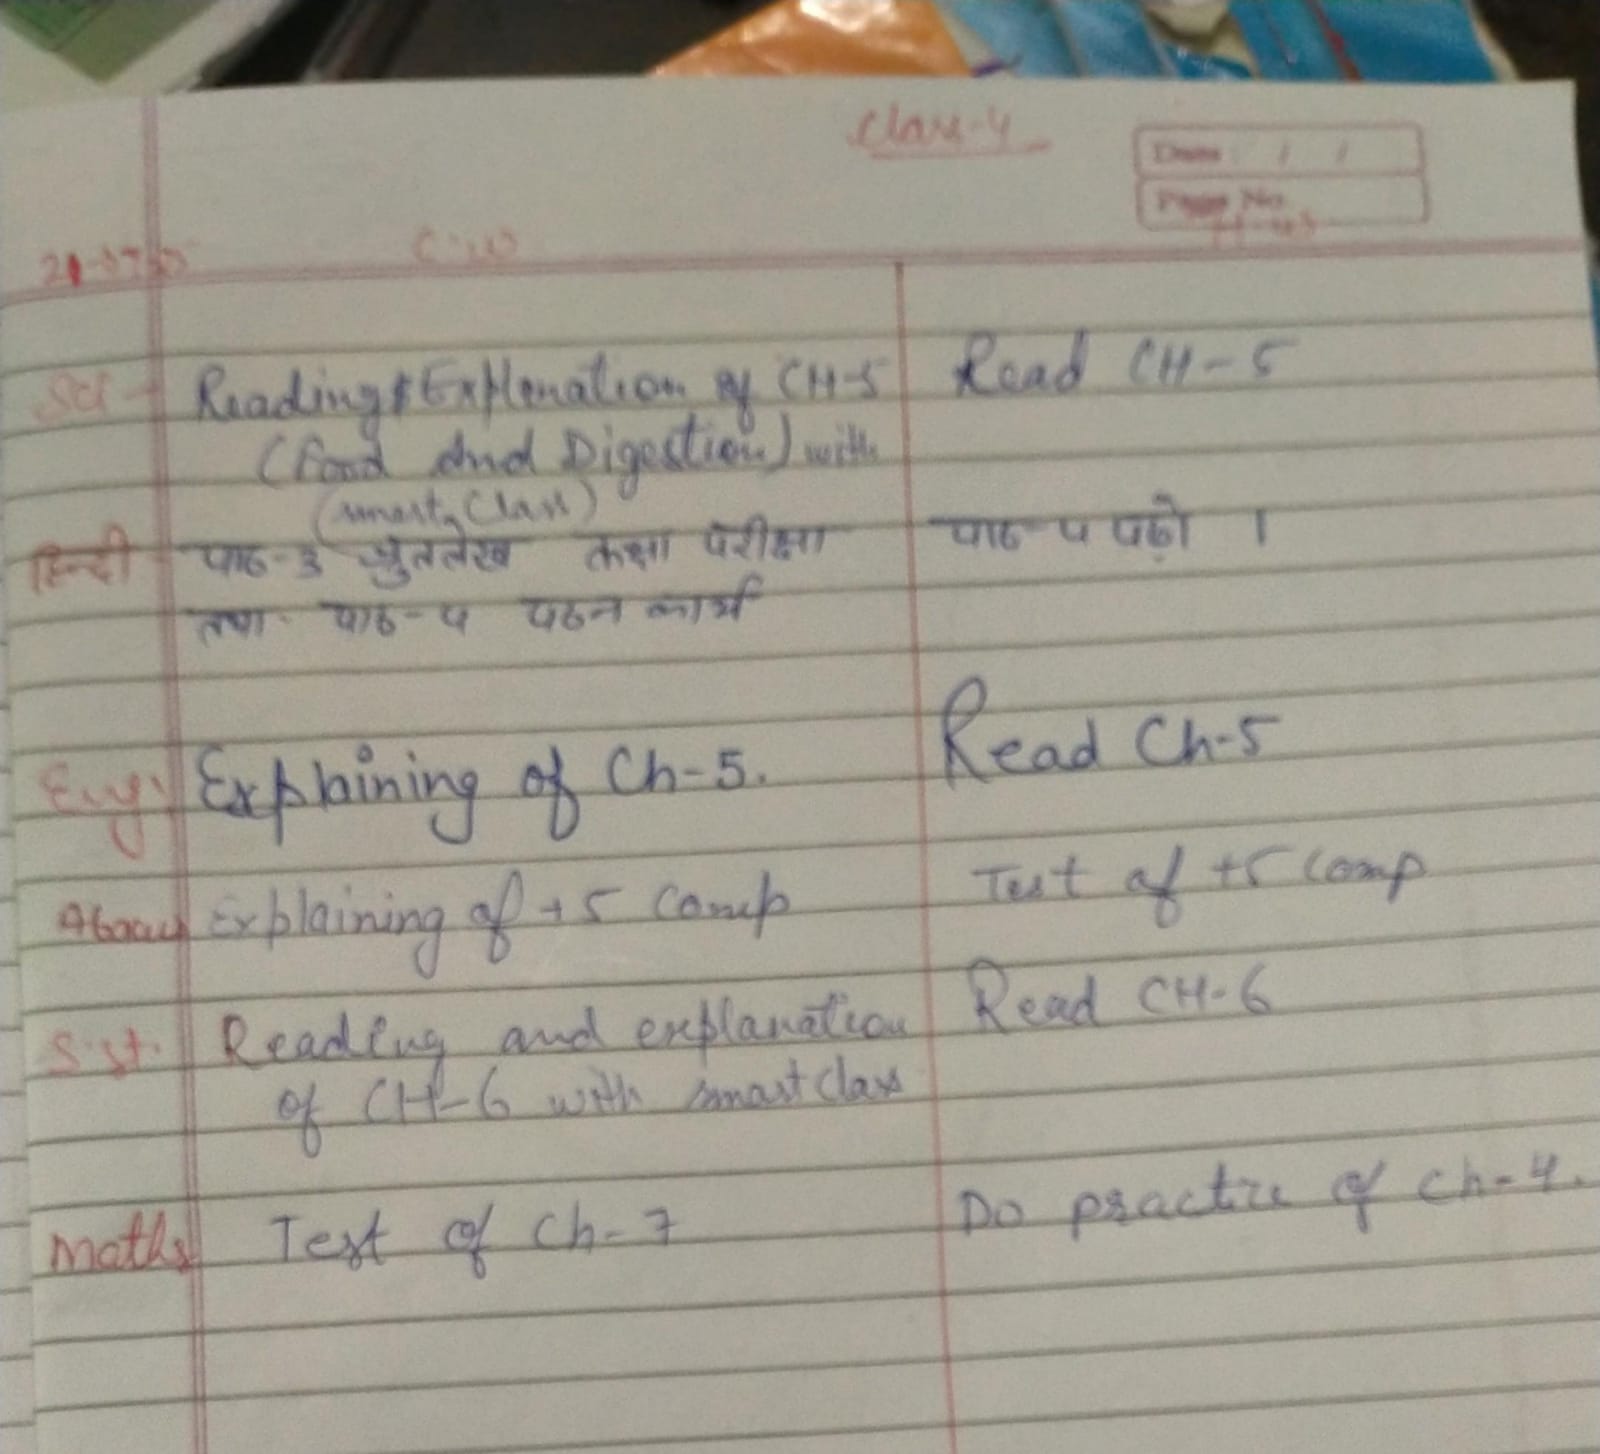 Class-4
Date / /
Page No.
C.W H.W
Sci - Reading & Explenation of CH-5 Read CH-5
(Food And Digestion) with
(smart Class)
हिन्दी पाठ-3 श्रुतलेख कक्षा परीक्षा पाठ-५ पढ़ो ।
तथा पाठ-५ पठन कार्य
Eng: Explaining of Ch-5. Read Ch-5
Explaining of +5 Comp Test of +5 Comp
S.st. Reading and explanation Read CH-6
of CH-6 with smart class
Maths Test of Ch-7 Do practice of Ch-4.